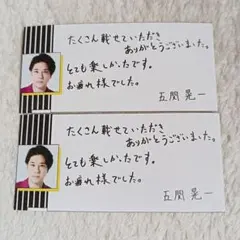 たくさん載せていただき
ありがとうございました。
とても楽しかったです。
お疲れ様でした。
五関晃一
たくさん載せていただき
ありがとうございました。
とても楽しかったです。
お疲れ様でした。
五関晃一